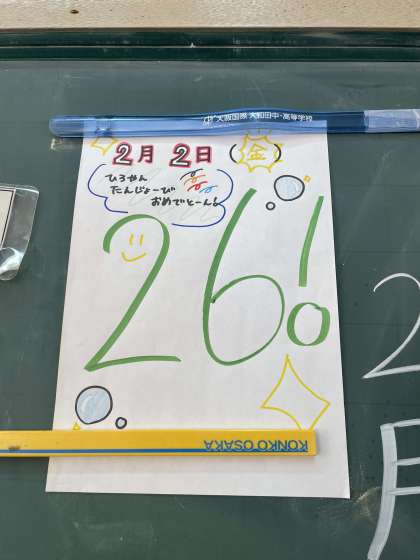 大阪国際 大和田中・高等学校
2月 2日 (金)
ひろやん
たんじょーび
おめでとーん!
26!
KONKO OSAKA
2
月